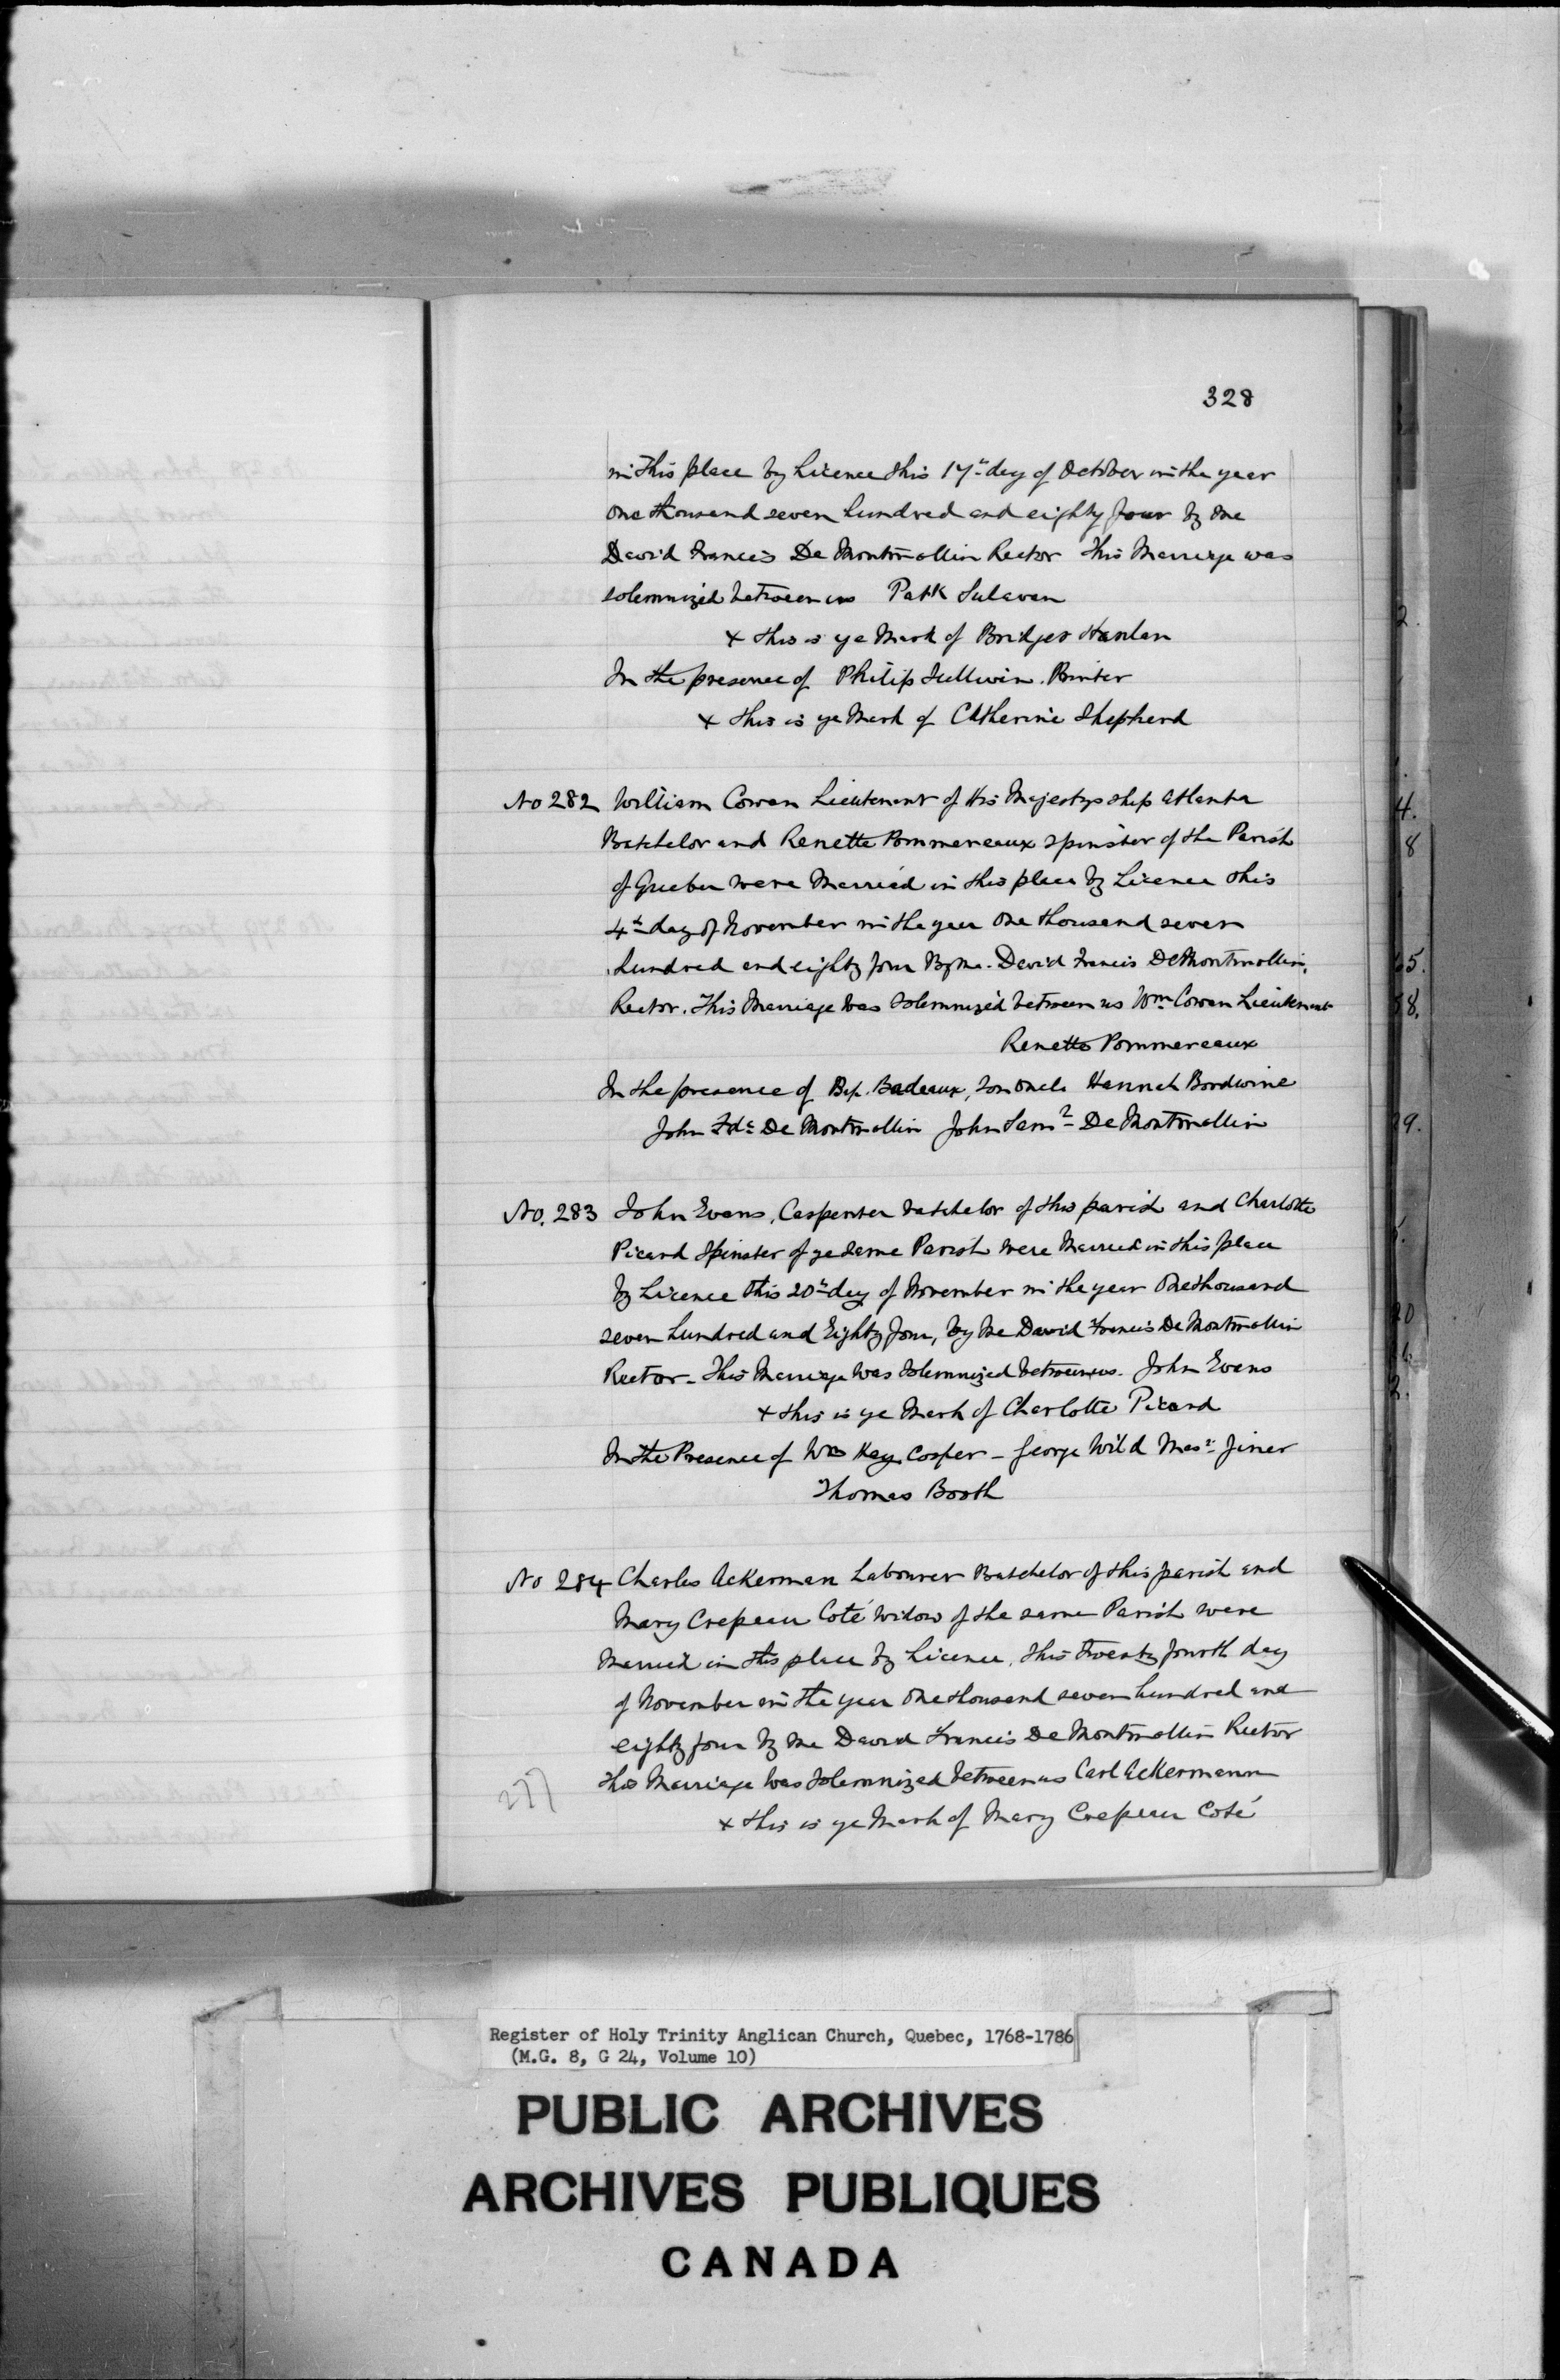 328
in this place by Licence this 17th day of October in the year
one thousand seven hundred and eighty four by me
David Francis De Montmollin Rector This Marriage was
solemnized between us Patk Sulavan
x this is ye Mark of Bridget Hanlan
In the presence of Philip Sullivin. Printer
x this is ye Mark of Catherine Shepherd
No 282 William Cowan Lieutenant of His Majestys ship Atlanta
Batchelor and Renette Pommereaux spinster of the Parish
of Quebec were Married in this place by Licence this
4th day of November in the year One thousand seven
hundred and eighty four By me. David Francis DeMontmollin,
Rector. This Marriage was solemnized between us Wm Cowan Lieutenant
Renette Pommereaux
In the presence of Bap. Badeaux, son oncle Hannah Bordwine
John Fdc De Montmollin John Saml De Montmollin
No. 283 John Evans, Carpenter batchelor of this parish and Charlotte
Picard Spinster of ye same Parish were Married in this place
by Licence this 20th day of November in the year One thousand
seven hundred and Eighty four, by me David Francis De Montmollin
Rector - This Marriage was solemnized between us. John Evans
x this is ye Mark of Charlotte Picard
In the Presence of Wm Key Cooper - George Wild Masr Jiner
Thomas Booth
No 284 Charles Ackerman Labourer Batchelor of this parish and
Mary Crepeau Coté widow of the same Parish were
Married in this place by Licence, this twenty fourth day
of November in the year One thousand seven hundred and
eighty four by me David Francis De Montmollin Rector
This Marriage was solemnized between us Carl Ackermann
277
x this is ye Mark of Mary Crepeau Coté
Register of Holy Trinity Anglican Church, Quebec, 1768-1786
(M.G. 8, G 24, Volume 10)
PUBLIC ARCHIVES
ARCHIVES PUBLIQUES
CANADA